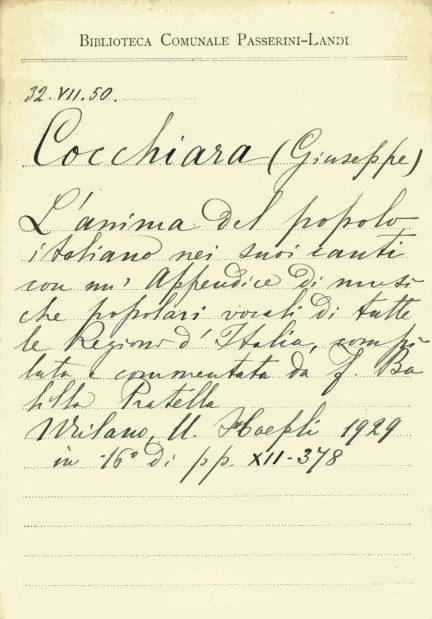 BIBLIOTECA COMUNALE PASSERINI-LANDI
32.VII.50.
Cocchiara (Giuseppe)
L'anima del popolo
italiano nei suoi canti
con un' Appendice di musi
che popolari vocali di tutte
le Regioni d'Italia, compi-
lata e commentata da f. Ba
lilla Pratella
Milano, U. Hoepli 1929
in -16° di pp. XII-378